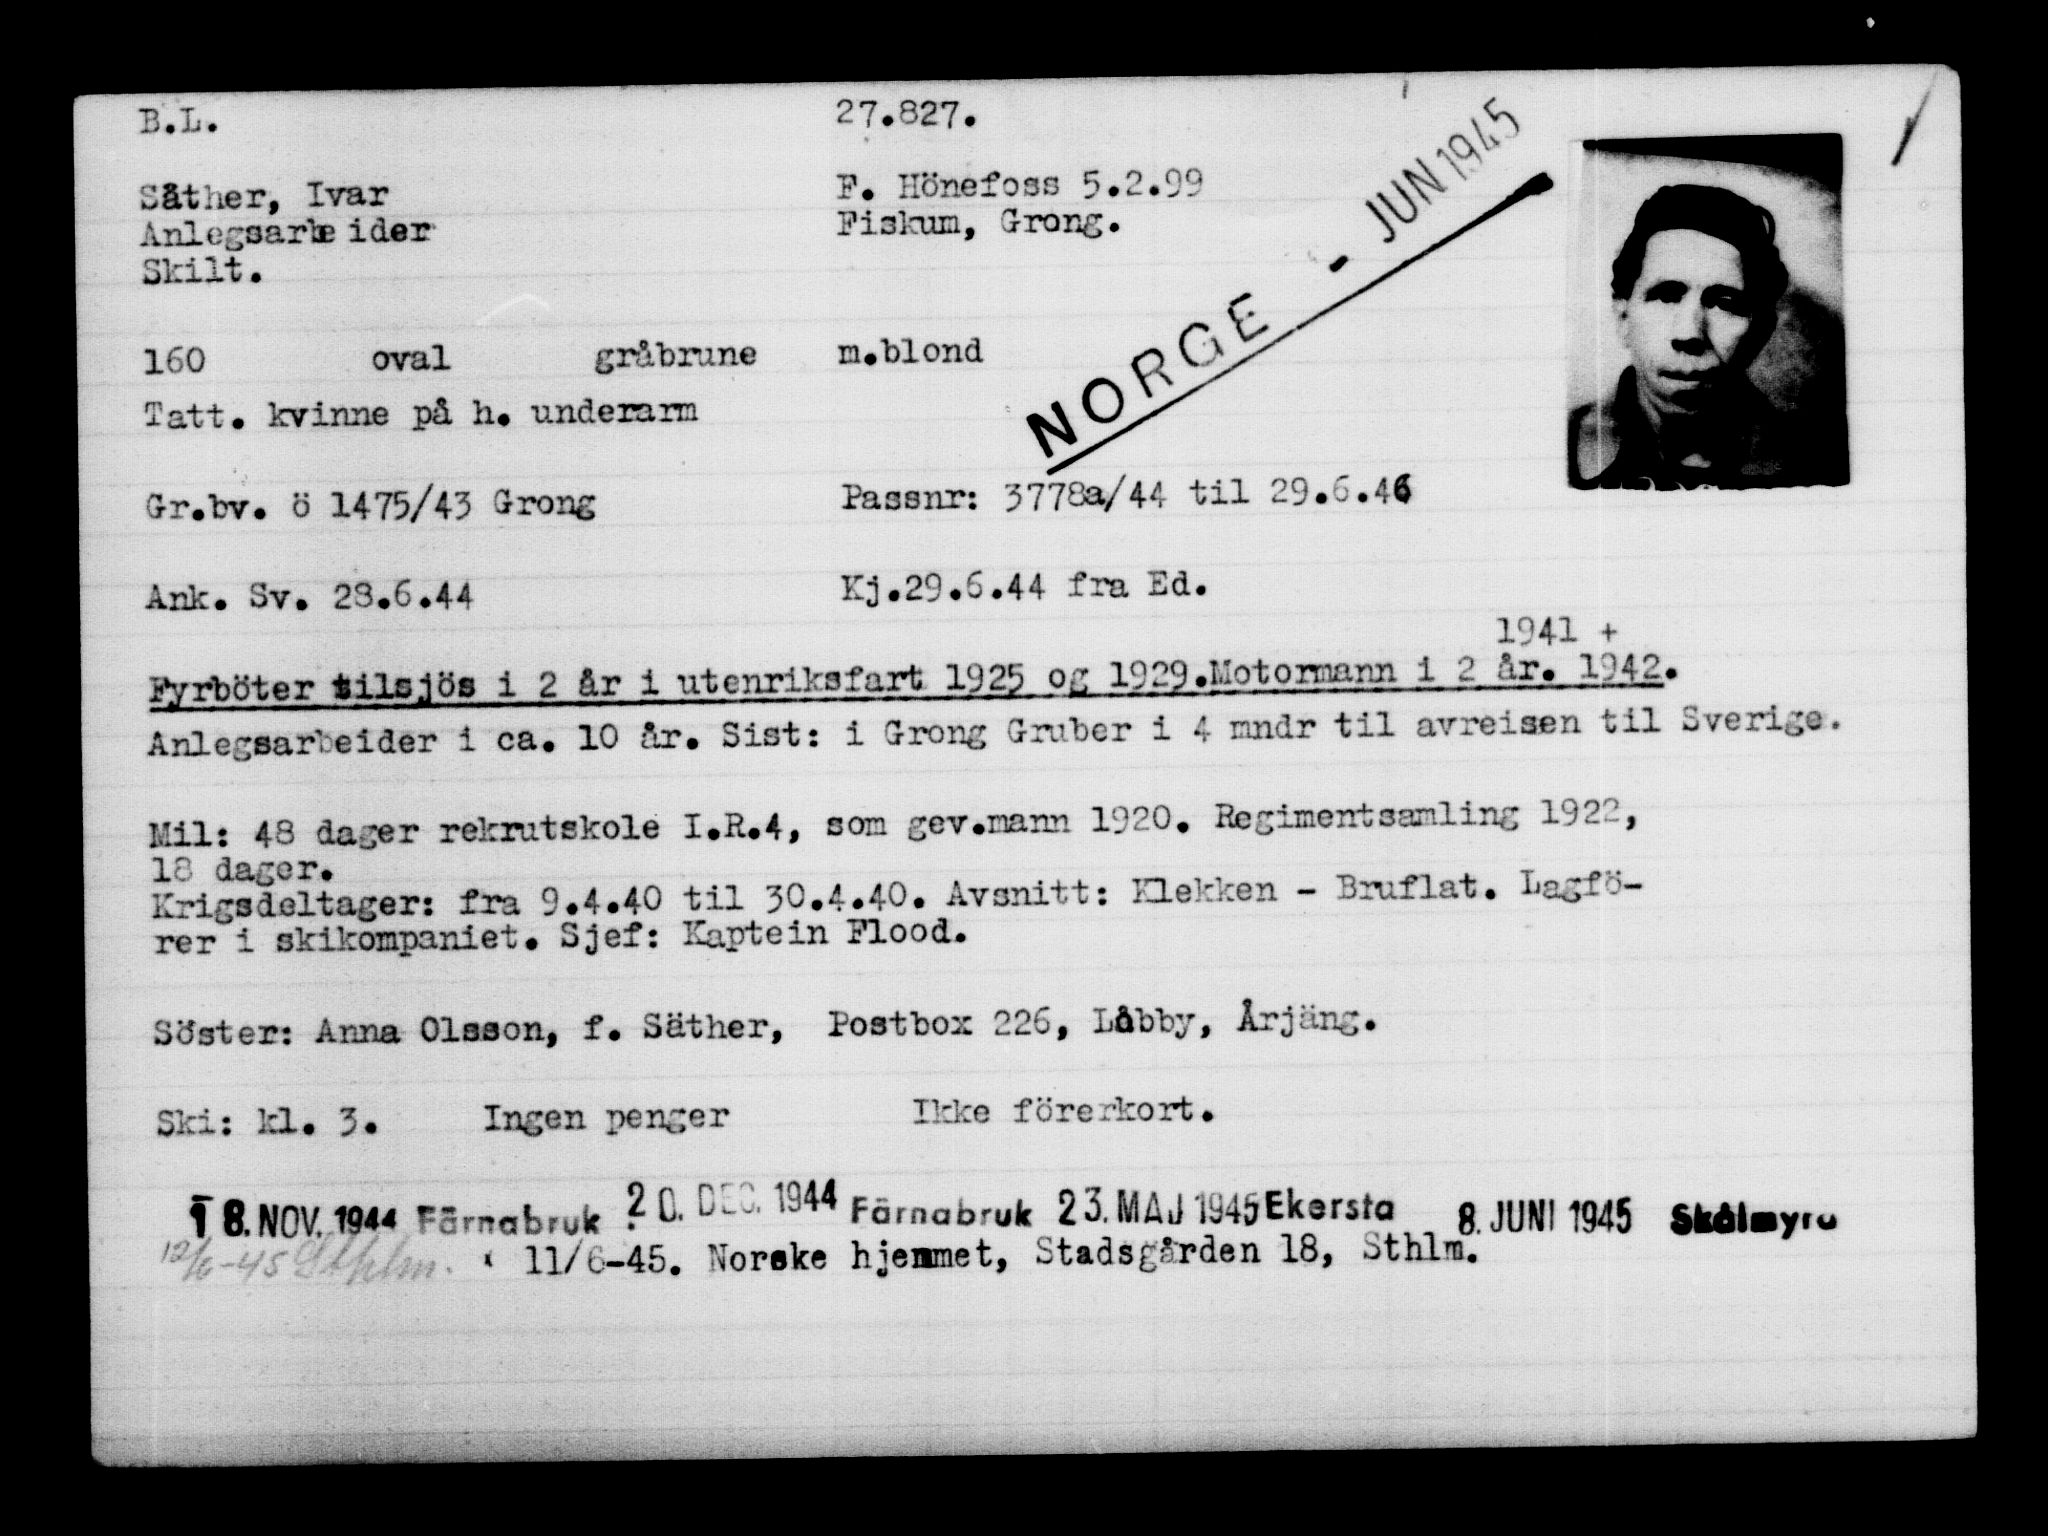 B.L. 27.827.
Säther, Ivar F. Hönefoss 5.2.99
Anlegsarbeider Fiskum, Grong.
Skilt.
NORGE - JUN 1945
160 oval gråbrune m.blond
Tatt. kvinne på h. underarm
Gr.bv. ö 1475/43 Grong Passnr: 3778a/44 til 29.6.46
Ank. Sv. 28.6.44 Kj.29.6.44 fra Ed.
1941 +
Fyrböter tilsjös i 2 år i utenriksfart 1925 og 1929.Motormann i 2 år. 1942.
Anlegsarbeider i ca. 10 år. Sist: i Grong Gruber i 4 mndr til avreisen til Sverige.
Mil: 48 dager rekrutskole I.R.4, som gev.mann 1920. Regimentsamling 1922,
18 dager.
Krigsdeltager: fra 9.4.40 til 30.4.40. Avsnitt: Klekken - Bruflat. Lagfö-
rer i skikompaniet. Sjef: Kaptein Flood.
Söster: Anna Olsson, f. Säther, Postbox 226, Låbby, Årjäng.
Ski: kl. 3. Ingen penger Ikke förerkort.
18. NOV. 1944 Färnabruk 20. DEC. 1944 Färnabruk 23. MAJ 1945 Ekersta 8. JUNI 1945 Skålmyra
12/6-45 Sthlm. 11/6-45. Norske hjemmet, Stadsgården 18, Sthlm.